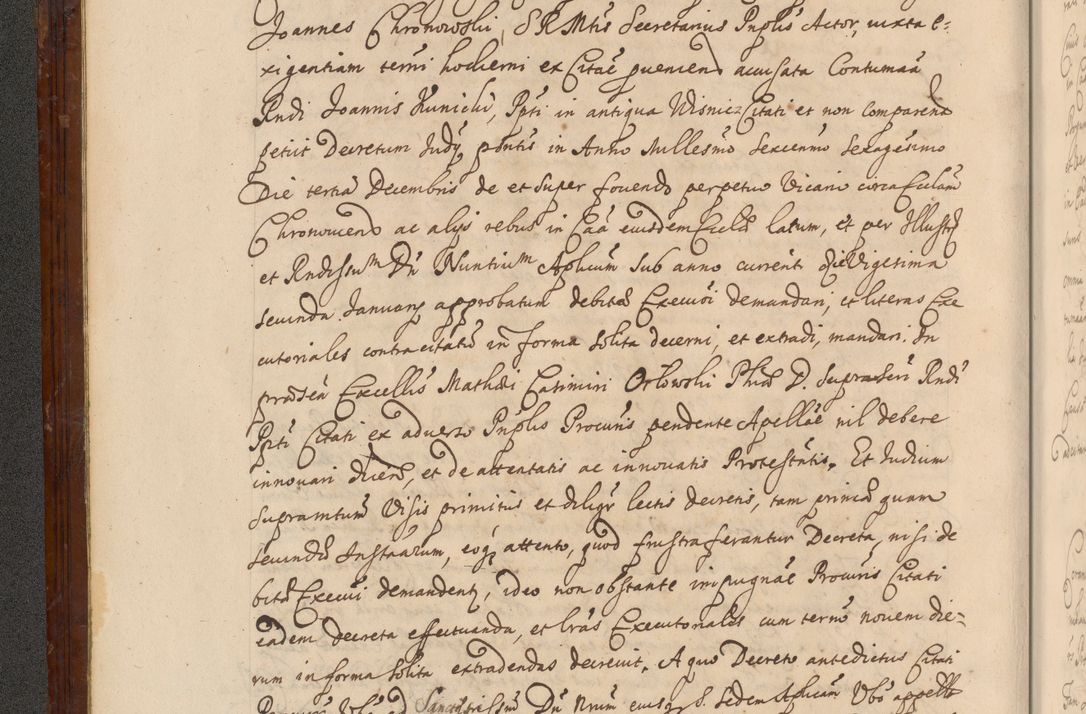 Joannes Chronowski, S R Mtis Secretarius Pnsls Actor, iuxta e-
xigentiam termi hodierni ex Citãe pueniend accusata Contumaa
Rndi Joannis Kunicki, Ppti in antiqua Wisnicz Citati et non comparend
petiit Decretum Judy pntis in Anno Millesmo Sexcenmo Sexagesimo
Die tertia Decembris de et super fouendo perpetuo Vicario circa Ecclam
Chronouiend ac alys rebus in Caa eiusdem Ecclae latum, et per Illustr
et Rndissum Dn Nuntium Aplicum sub anno currenti die Vigesima
secunda January approbatum debitae Execuoi demandari, et literas Exe
cutoriales contra citatu in forma solita decerni, et extradi, mandari. In
praesea Excellis Mathei Casimiri Orlowski Phiae D. Supradicti Rndi
Ppti Citati ex aduerso Pnsls Procuris pendente Apellae nil debere
innouari dicen, et de attentatis ac innouatis Protestatis. Et Judicium
supramtum Visis primitus et diligr lectis decretis, tam primae quam
secundae Instaarum, eoq attento, quod frustra ferantur Decreta, nisi de
bitae Execui demandent, ideo non obstante impugnae Procuris Citati
eadem decreta effectuanda, et lras Executoriales cum termo nouem die-
rum in forma solita extradendas decreuit. A quo Decreto antedictus Citati
Sanctissim Dn Nrum eiusq S. Sedem Aplicam Vbo appellt